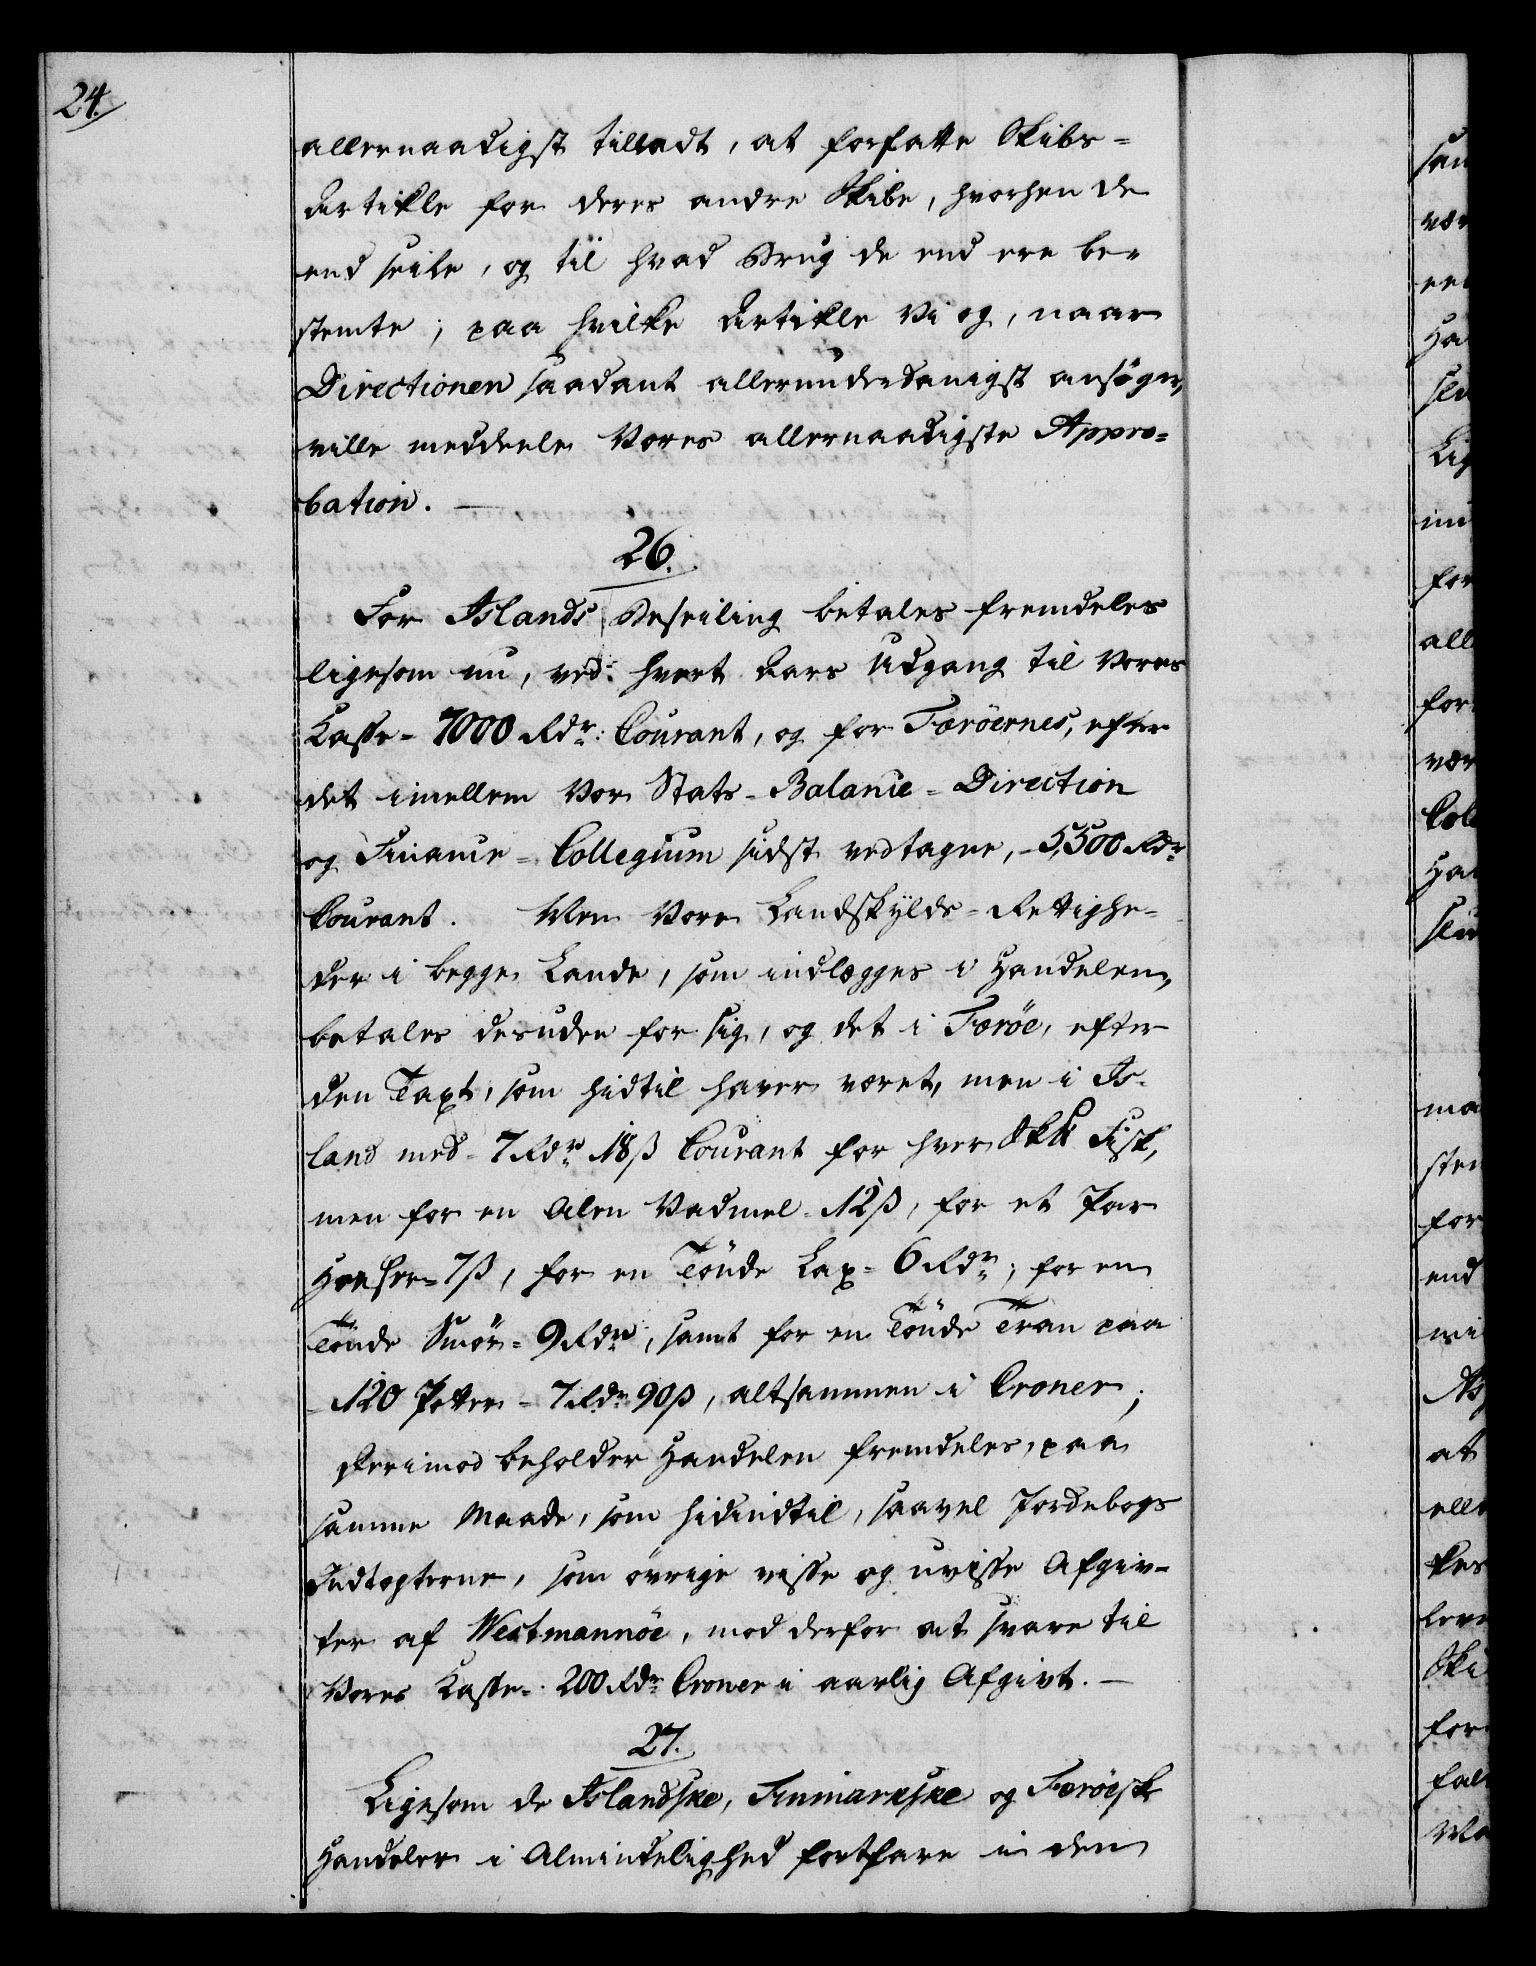 24.
allernaadigst tilladt, at forfatte Skibs-
Artikle for deres andre Skibe, hvorhen de
end seile, og til hvad Brug de end ere be-
stemte; paa hvilke Artikle Vi og, naar
Directionen saadant allerunderdanigst ansøger,
ville meddeele Vores allernaadigste Appro-
bation. —
26.
For Islands Beseiling betales fremdeles
ligesom nu, ved hvert Aars Udgang til Vores
Kasse - 7000 Rdr. Courant, og for Færöernes, efter
det imellem Vor Stats-Balance-Direction
og Finance-Collegium sidst vedtagne, - 5,500 Rdr
Courant. Men Vore Landskylds-Rettighe-
der i begge Lande, som indlægges i Handelen,
betales desuden for sig, og det i Færöe, efter
den Taxt, som hidtil haver været, men i Is-
land med - 7 Rdr 18 ß Courant for hver Sk℔ Fisk,
men for en Alen Vadmel - 12 ß, for et Par
Hoser - 7 ß, for en Tönde Lax - 6 Rdr; for en
Tönde Smör - 9 Rdr, samt for en Tönde Tran paa
120 Potter - 7 Rdr 90 ß, altsammen i Croner;
Derimod beholder Handelen fremdeles, paa
samme Maade, som hidindtil, saavel Jordebogs
Indtægterne, som övrige visse og uvisse Afgiv-
ter af Westmannöe, mod derfor at svare til
Vores Kasse - 200 Rdr Croner i aarlig Afgivt. —
27.
Ligesom de Islandske, Finmarkske og Færöeske
Handeler i Almindelighed fortfare i den